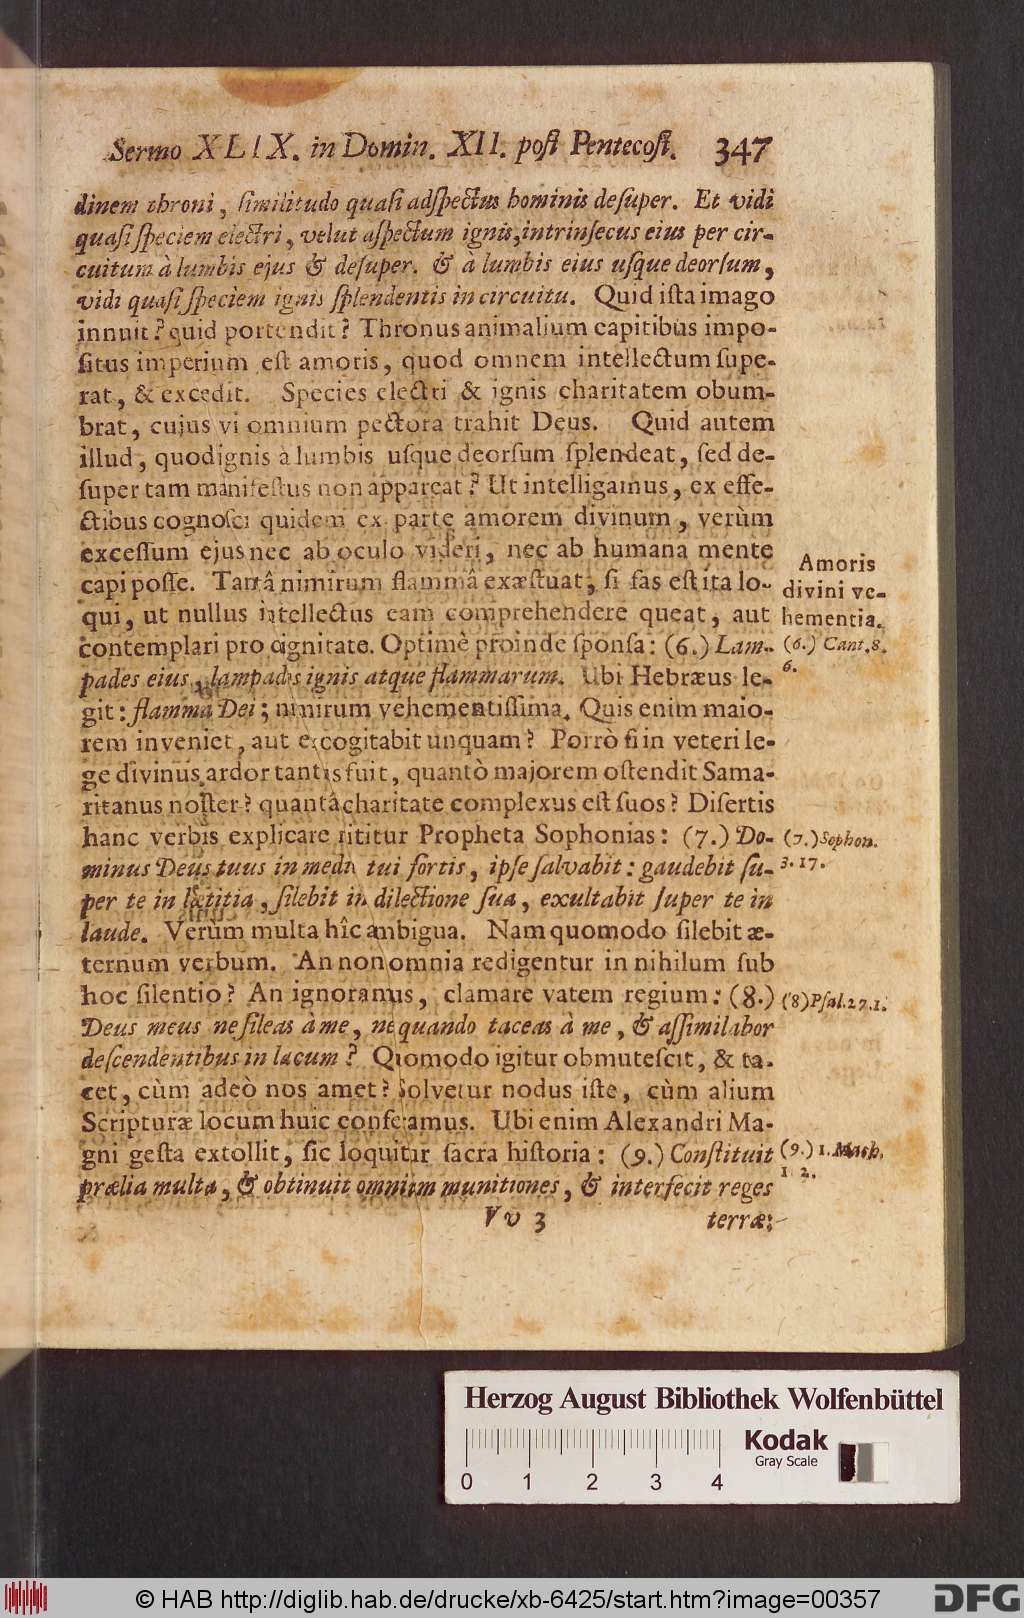 Sermo XLIX. in Domin. XII. poſt Pentecoſt. 347
dinem throni, ſimilitudo quaſi adſpectus hominis deſuper. Et vidi
quaſi ſpeciem electri, velut aſpectum ignis, intrinſecus eius per cir-
cuitum à lumbis ejus & deſuper. & à lumbis eius uſque deorſum,
vidi quaſi ſpeciem ignis ſplendentis in circuitu. Quid iſta imago
innuit? quid portendit? Thronus animalium capitibus impo-
ſitus imperium eſt amoris, quod omnem intellectum ſupe-
rat, & excedit. Species electri & ignis charitatem obum-
brat, cujus vi omnium pectora trahit Deus. Quid autem
illud, quod ignis à lumbis uſque deorſum ſplendeat, ſed de-
ſuper tam manifeſtus non appareat? Ut intelligamus, ex effe-
ctibus cognoſci quidem ex parte amorem divinum, verùm
exceſſum ejus nec ab oculo videri, nec ab humana mente
capi poſſe. Tantâ nimirum flammâ exæſtuat, ſi fas eſt ita lo-
qui, ut nullus intellectus eam comprehendere queat, aut
contemplari pro dignitate. Optimè proinde ſponſa: (6.) Lam-
pades eius, lampades ignis atque flammarum. Ubi Hebræus le-
git: flamma Dei; nimirum vehementiſſima. Quis enim maio-
rem inveniet, aut excogitabit unquam? Porrò ſi in veteri le-
ge divinus ardor tantus fuit, quantò majorem oſtendit Sama-
ritanus noſter? quantâ charitate complexus eſt ſuos? Diſertis
hanc verbis explicare nititur Propheta Sophonias: (7.) Do-
minus Deus tuus in medio tui fortis, ipſe ſalvabit: gaudebit ſu-
per te in lætitia, ſilebit in dilectione ſua, exultabit ſuper te in
laude. Verùm multa hîc ambigua. Nam quomodo ſilebit æ-
ternum verbum. An non omnia redigentur in nihilum ſub
hoc ſilentio? An ignoramus, clamare vatem regium: (8.)
Deus meus ne ſileas à me, nequando taceas à me, & aſſimilabor
deſcendentibus in lacum? Quomodo igitur obmuteſcit, & ta-
cet, cùm adeò nos amet? Solvetur nodus iſte, cùm alium
Scripturæ locum huic conferamus. Ubi enim Alexandri Ma-
gni geſta extollit, ſic loquitur ſacra hiſtoria: (9.) Conſtituit
prælia multa, & obtinuit omnium munitiones, & interfecit reges
Vv 3 terræ:
Amoris
divini ve-
hementia.
(6.) Cant. 8.
6.
(7.) Sophon.
3. 17.
(8) Pſal. 27. 1.
(9.) 1. Mach.
1 2.
Herzog August Bibliothek Wolfenbüttel
0 1 2 3 4
Kodak
Gray Scale
© HAB http://diglib.hab.de/drucke/xb-6425/start.htm?image=00357
DFG